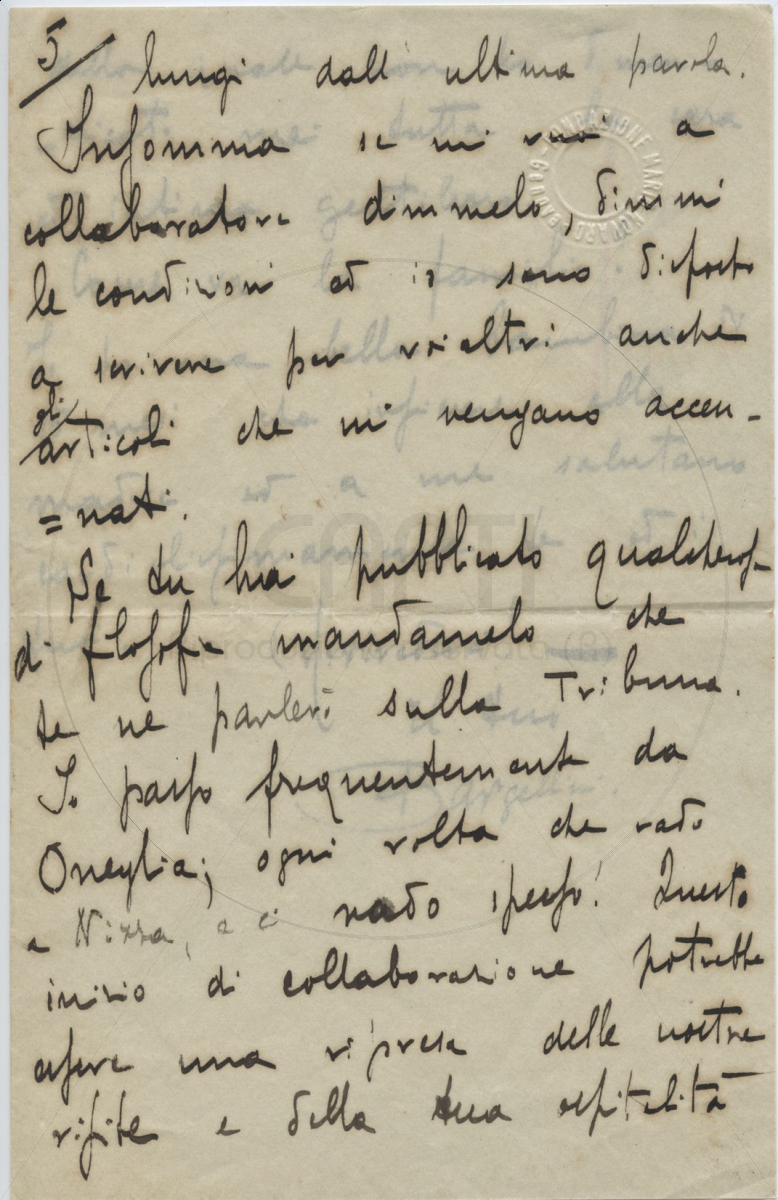 5/ lungi dall' ultima parola.
Insomma se mi vuoi a
collaboratore dimmelo, dimmi
le condizioni ed io sono disposto
a scrivere per voialtri anche
gli articoli che mi vengano accen-
=nati.
Se tu hai pubblicato qualchecosa
di filosofia mandamelo che
te ne parlerò sulla Tribuna.
Io passo frequentemente da
Oneglia; ogni volta che vado
a Nizza, e ci vado spesso! Questo
inizio di collaborazione potrebbe
essere una ripresa delle nostre
visite e della tua ospitalità